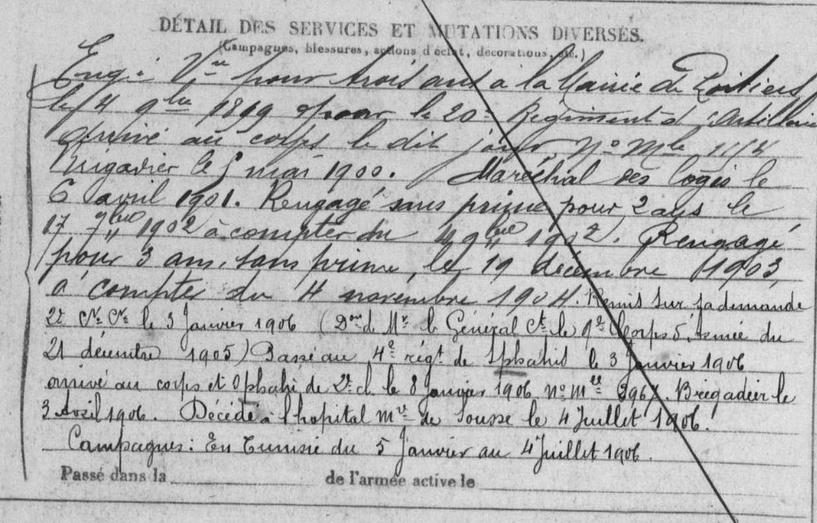 DÉTAIL DES SERVICES ET MUTATIONS DIVERSES.
(Campagnes, blessures, actions d'éclat, décorations, etc.)
Engé Vre pour trois ans à la Mairie de Poitiers
le 4 9bre 1899 pour le 20e Régiment d'Artillerie
Arrivé au corps le dit jour No Mle
Brigadier le mai 1900. Maréchal des logis le
6 avril 1901. Rengagé sans prime pour 2 ans le
17 7bre 1902 à compter du 4 9bre 1902. Rengagé
pour 3 ans, sans prime, le 19 décembre 1903,
à compter du 4 novembre 1904. Remis sur sa demande
2e Cr Cr le 3 Janvier 1906 (Don d Mr le Général Ct le 9e Corps d'armée du
21 décembre 1905) Passé au 4e régt de Sphahis le 3 Janvier 1906
arrivé au corps et Sphahi de 2e cl. le 8 Janvier 1906 no mle Brigadier le
3 Avril 1906. Décédé à l'hopital mre de Sousse le 4 Juillet 1906.
Campagnes: En Tunisie du 5 Janvier au 4 Juillet 1906.
Passé dans la de l'armée active le